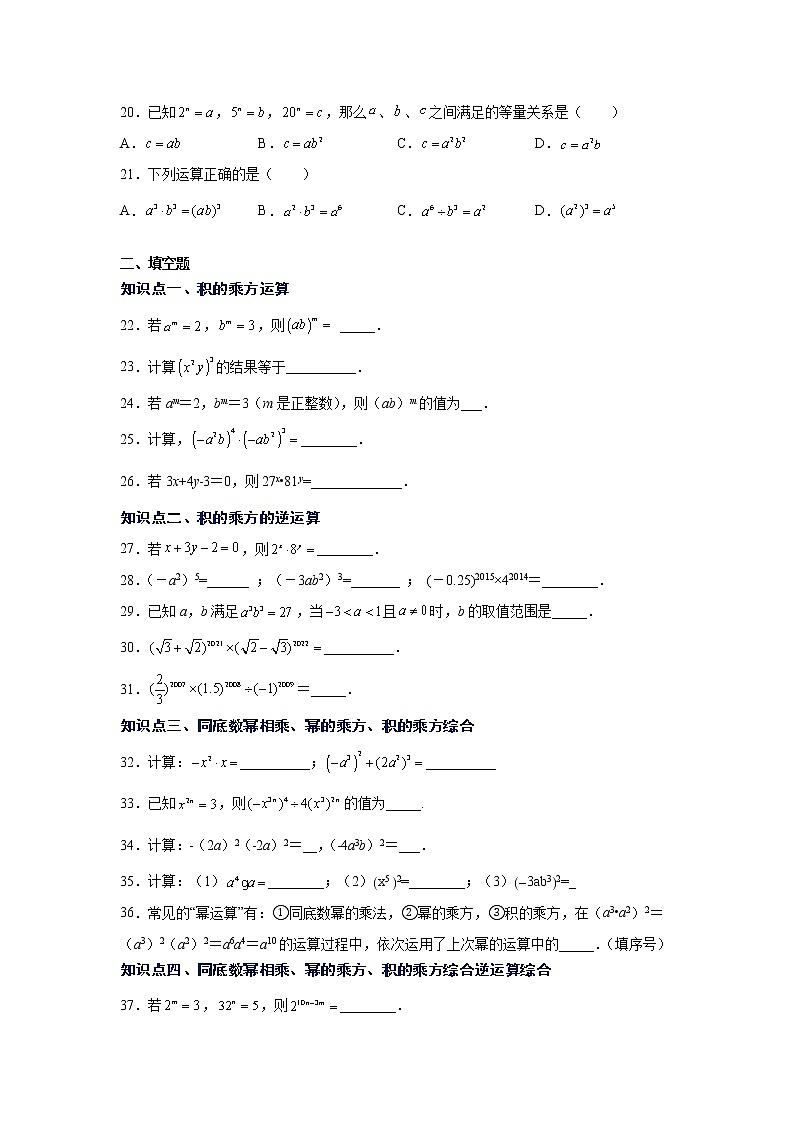 20.已知2ⁿ = a,5ⁿ = b,20ⁿ = c,那么a、b、c之间满足的等量关系是( )
A.c = ab B.c = ab² C.c = a²b² D.c = a²b
21.下列运算正确的是( )
A.a³·b³ = (ab)³ B.a²·b³ = a⁶ C.a⁶ ÷ b³ = a² D.(a²)³ = a⁵
二、填空题
知识点一、积的乘方运算
22.若aᵐ = 2,bᵐ = 3,则(ab)ᵐ = _____.
23.计算(x²y)³的结果等于__________.
24.若 aᵐ=2,bᵐ=3(m 是正整数),则(ab)ᵐ的值为___.
25.计算,(−a²b)⁴·(−ab²)³ = ________.
26.若 3x+4y-3=0,则 27ˣ•81ʸ=_____________.
知识点二、积的乘方的逆运算
27.若x + 3y − 2 = 0,则2ˣ·8ʸ = ________.
28.(-a²)⁵=______ ;(-3ab²)³=_______ ; (-0.25)²⁰¹⁵×4²⁰¹⁴=________.
29.已知 a,b 满足a³b³ = 27,当−3 < a < 1且a ≠ 0时,b 的取值范围是_____.
30.(√3 + √2)²⁰²¹ ×(√2 − √3)²⁰²² = __________.
31.(2/3)²⁰⁰⁷ ×(1.5)²⁰⁰⁸ ÷(−1)²⁰⁰⁹ =_____.
知识点三、同底数幂相乘、幂的乘方、积的乘方综合
32.计算:−x²·x = __________;(−a³)² + (2a²)³ = __________
33.已知x²ⁿ = 3,则(−x³ⁿ)⁴ ÷ 4(x³)²ⁿ的值为_____.
34.计算:-(2a)²(-2a)²=__,(-4a³b)²=___.
35.计算:(1)a⁴ga = ________;(2)(x⁵ )²=________;(3)(−3ab³)²=_
36.常见的“幂运算”有:①同底数幂的乘法,②幂的乘方,③积的乘方,在(a³•a²)²=
(a³)²(a²)²=a⁶a⁴=a¹⁰的运算过程中,依次运用了上次幂的运算中的_____.(填序号)
知识点四、同底数幂相乘、幂的乘方、积的乘方综合逆运算综合
37.若2ᵐ = 3,32ⁿ = 5,则2¹⁰ⁿ⁻³ᵐ = ________.